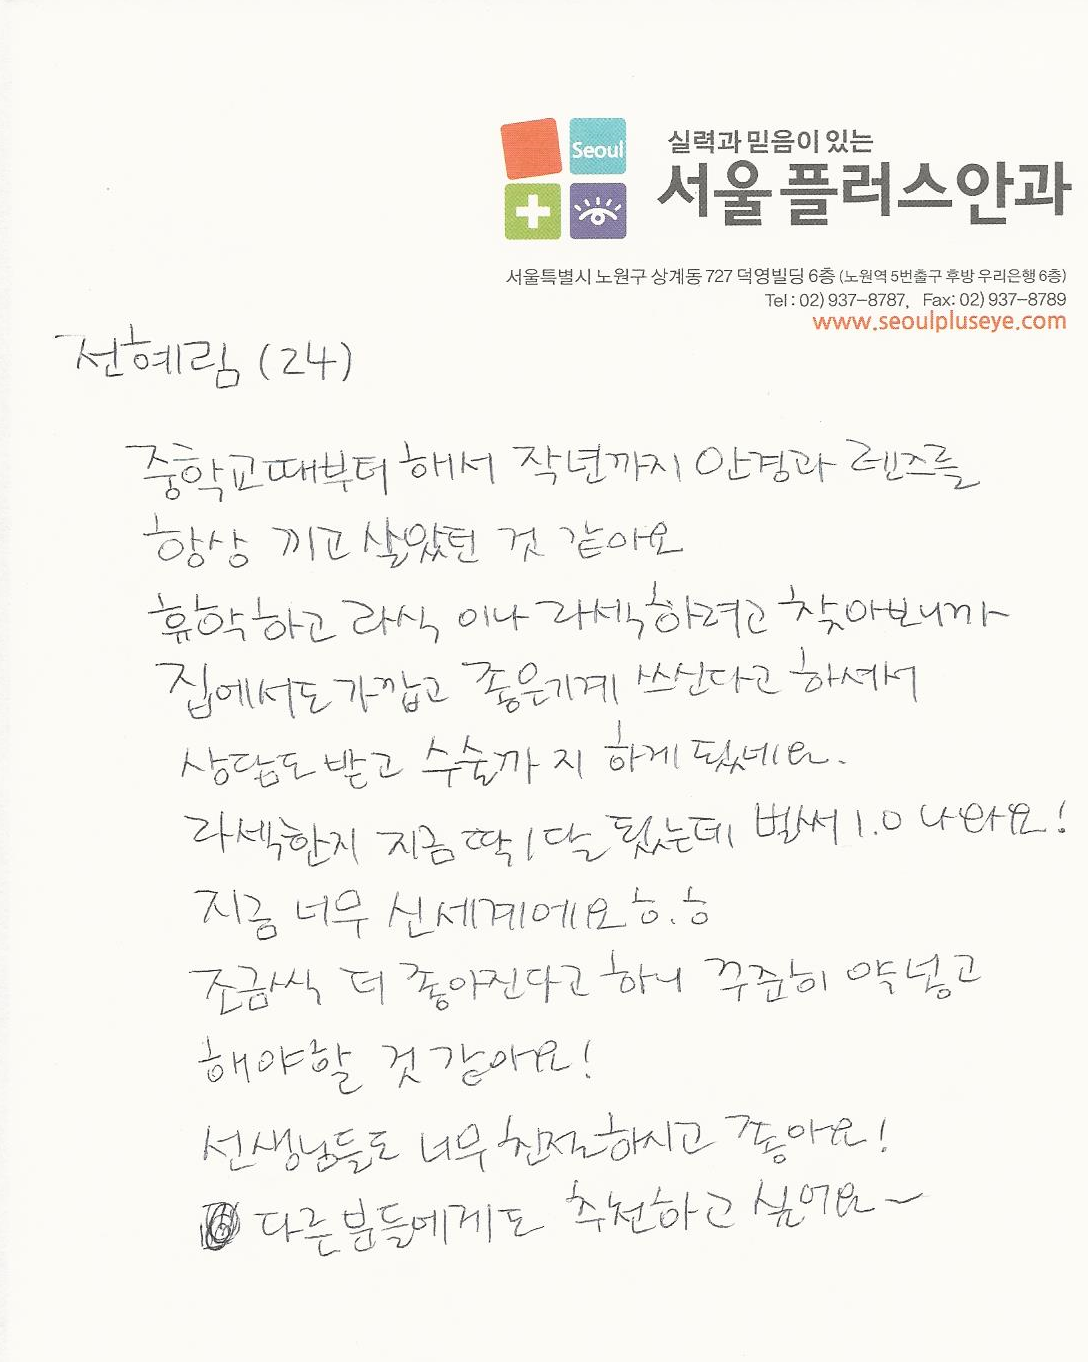 Seoul
실력과 믿음이 있는
서울플러스안과
서울특별시 노원구 상계동 727 덕영빌딩 6층 (노원역 5번출구 후방 우리은행 6층)
Tel : 02) 937-8787,  Fax: 02) 937-8789
www.seoulpluseye.com
전혜림 (24)
중학교때부터 해서 작년까지 안경과 렌즈를
항상 끼고 살았던 것 같아요
휴학하고 라식 이나 라섹하려고 찾아보니까
집에서도 가깝고 좋은기계 쓰신다고 하셔서
상담도 받고 수술까지 하게 됐네요.
라섹한지 지금 딱 1달 됐는데 벌써 1.0 나와요!
지금 너무 신세계에요 ㅎ.ㅎ
조금씩 더 좋아진다고 하니 꾸준히 약 넣고
해야할 것 같아요!
선생님들도 너무 친절하시고 좋아요!
다른분들에게도 추천하고 싶어요~